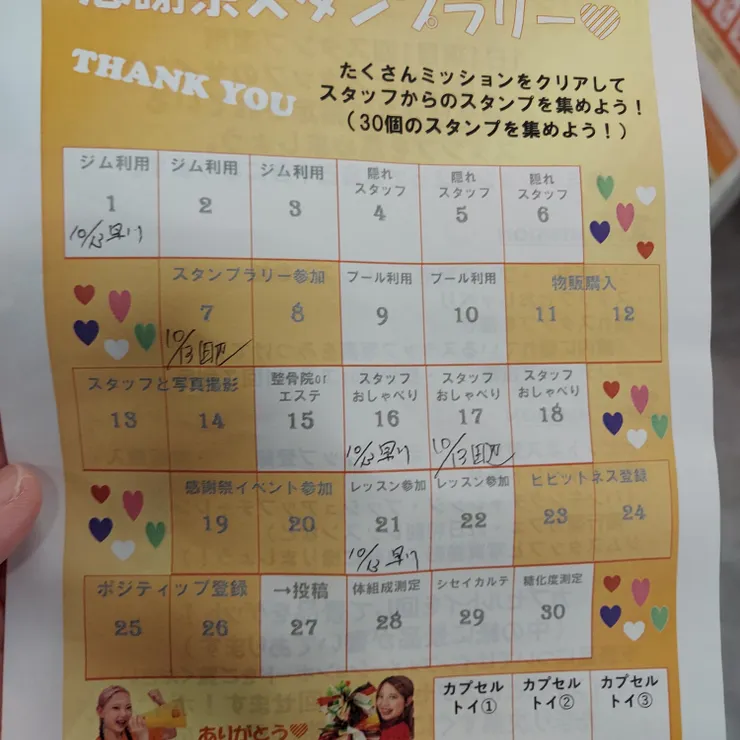 感謝祭スタンプラリー
THANK YOU
たくさんミッションをクリアして
スタッフからのスタンプを集めよう！
（30個のスタンプを集めよう！）
ジム利用 ジム利用 ジム利用 隠れスタッフ 隠れスタッフ 隠れスタッフ
1 2 3 4 5 6
10/13
スタンプラリー参加 プール利用 プール利用 物販購入
7 8 9 10 11 12
10/13
スタッフと写真撮影 整骨院orエステ スタッフおしゃべり スタッフおしゃべり スタッフおしゃべり
13 14 15 16 17 18
10/13 10/13
感謝祭イベント参加 レッスン参加 レッスン参加 ヒビットネス登録
19 20 21 22 23 24
10/13
ポジティップ登録 →投稿 体組成測定 シセイカルテ 糖化度測定
25 26 27 28 29 30
ありがとう
カプセルトイ① カプセルトイ② カプセルトイ③